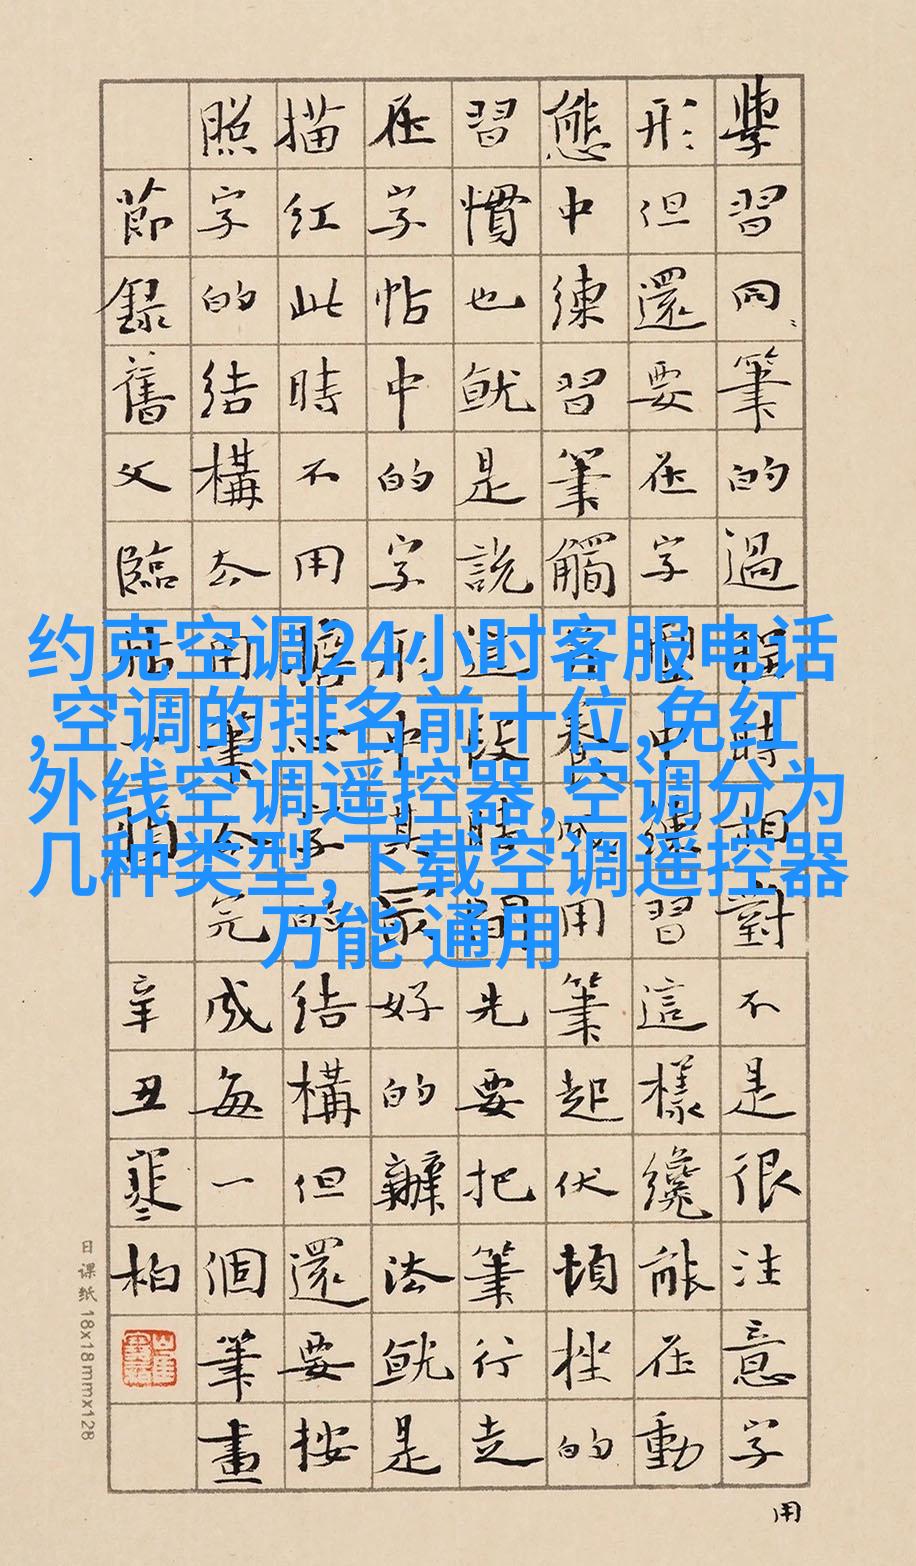 約克空调24小时客服电话
,空调的排名前十位,免红
外线空调遥控器,空调分为
几种类型,下载空调遥控器
万能 通用
學習同筆的過程時相對不是很注意字
用
形但還要在字中練習這樣纔能在動
態中練習筆觸養成用筆起伏頓挫的
習慣也就是說這段時間先要把筆行走
在字帖中的字形中其最好的辦法就是
描紅此時不用心字的結構但還要按
照字的結構去用筆完成每一個筆畫
節錄舊文臨帖
辛丑寒柏
日课纸 18x18mmx128